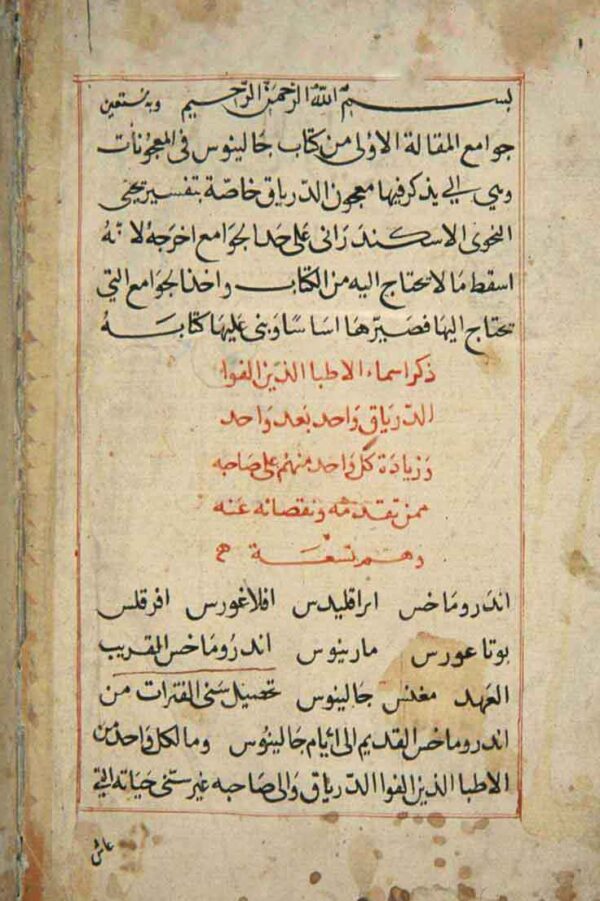 بسم الله الرحمن الرحيم وبه نستعين
جوامع المقالة الاولى من كتاب جالينوس فى المعجونات
وهي التي يذكر فيها معجون الدرياق خاصة بتفسير يحيى
النحوى الاسكندرانى على حد الجوامع اخرجه لا نه
اسقط ما لا يحتاج اليه من الكتاب واخذ الجوامع التي
يحتاج اليها فصيرها اساسا وبنى عليها كتابه
ذكر اسماء الاطبا الذين الفوا
الدرياق واحد بعد واحد
وزيادة كل واحد منهم على صاحبه
ممن تقدمه ونقصانه عنه
وهم تسعة
اندروماخس ابراقليدس افلاغورس افرقلس
بوتاغورس مارينوس اندروماخس القريب
العهد مغنس جالينوس تحصيل سنى الفترات من
اندروماخس القديم الى ايام جالينوس وما لكل واحد من
الاطبا الذين الفوا الدرياق والى صاحبه غير سنى حياته التي